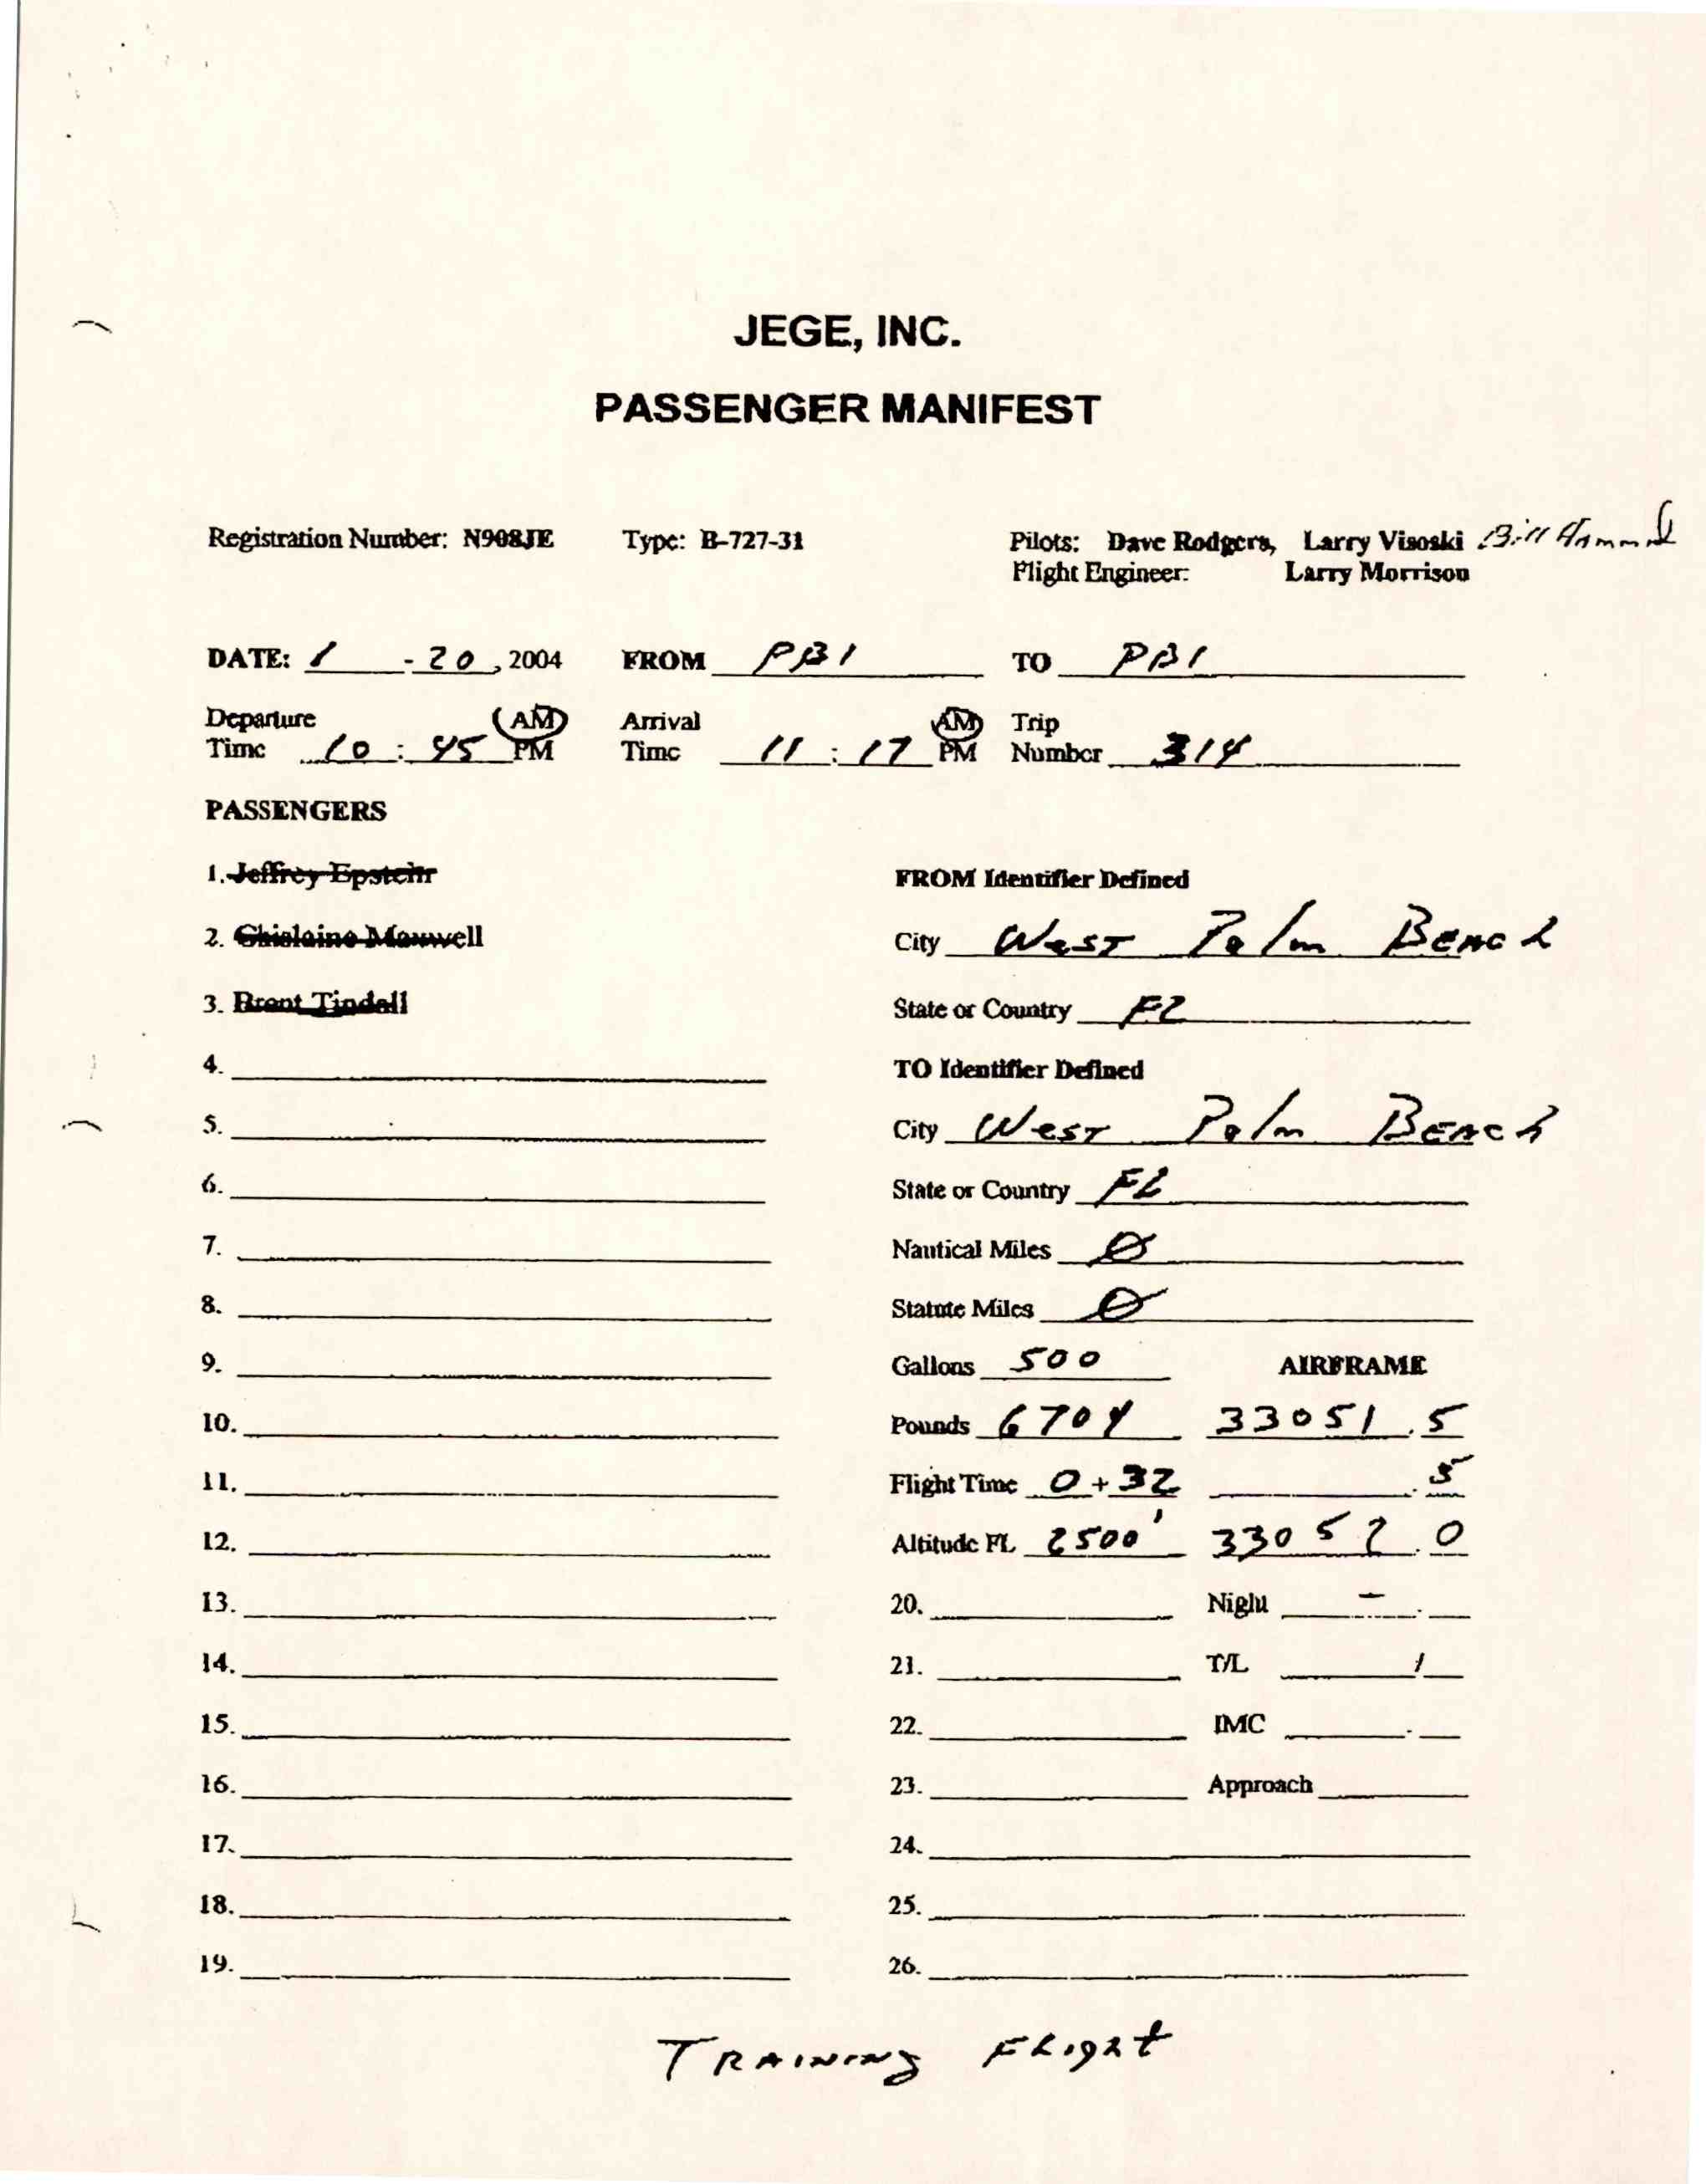 JEGE, INC.
PASSENGER MANIFEST
Registration Number: N908JE Type: B-727-31 Pilots: Dave Rodgers, Larry Visoski Bill
Flight Engineer: Larry Morrison
DATE: 1 - 20, 2004 FROM PBI TO PBI
Departure Time 10 : 45 AM PM Arrival Time 11 : 17 AM PM Trip Number 314
PASSENGERS
1. Jeffrey Epstein
FROM Identifier Defined
2. Ghislaine Maxwell
City West Palm Beach
3. Brent Tindall
State or Country FL
4.
TO Identifier Defined
5.
City West Palm Beach
6.
State or Country FL
7.
Nautical Miles Ø
8.
Statute Miles Ø
9.
Gallons 500 AIRFRAME
10.
Pounds 6704 33051.5
11.
Flight Time 0+32 .5
12.
Altitude FL 2500' 33052.0
13.
20. Night -
14.
21. T/L /
15.
22. IMC .
16.
23. Approach
17.
24.
18.
25.
19.
26.
TRAINING FLIGHT